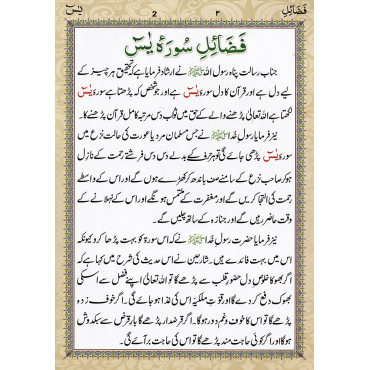 فضائل 2 ۲ یٰسٓ
فَضَائِلِ سُورَۂ یٰسٓ
جناب رسالت پناہ رسول اللہ ﷺ نے ارشاد فرمایا ہے کہ تحقیق ہر چیز کے
لیے دل ہے اور قرآن کا دل سورہ یٰسٓ ہے اور جو شخص کہ پڑھتا ہے سورہ یٰسٓ
لکھتا ہے اللہ تعالیٰ پڑھنے والے کے حق میں ثواب دس مرتبہ کامل قرآن پڑھنے کا۔
نیز فرمایا رسول خدا ﷺ نے جس مسلمان مرد یا عورت کی حالت نزع میں
سورہ یٰسٓ پڑھی جائے گی تو ہر حرف کے بدلے دس دس فرشتے رحمت کے نازل
ہو کر صاحب نزع کے سامنے صف باندھ کر کھڑے ہوں گے اور اس کے واسطے
رحمت کی التجا کریں گے اور مغفرت کے ملتمس ہونگے اور اس کے نہلانے کے
وقت حاضر رہیں گے اور جنازہ کے ساتھ چلیں گے۔
نیز فرمایا حضرت رسول خدا ﷺ نے کہ اس سورۃ کو بہت پڑھا کرو کیونکہ
اس میں بہت فائدے ہیں۔ شارعین نے اس حدیث کی شرح میں کہا ہے کہ
اگر بھوکا خلوص دل حضور قلب سے پڑھے گا تو اللہ تعالیٰ اپنے فضل سے اسکی
بھوک دفع کر دے گا اور قوت ملکیہ اس کی غذا ہو جائے گی۔ اگر خوف زدہ
پڑھے گا تو اس کا خوف و غم دور ہوگا۔ اگر قرضدار پڑھے گا بار قرض سے سبکدوش
ہوگا اور اگر کوئی حاجت مند پڑھے گا تو اس کی حاجت بر آئے گی۔